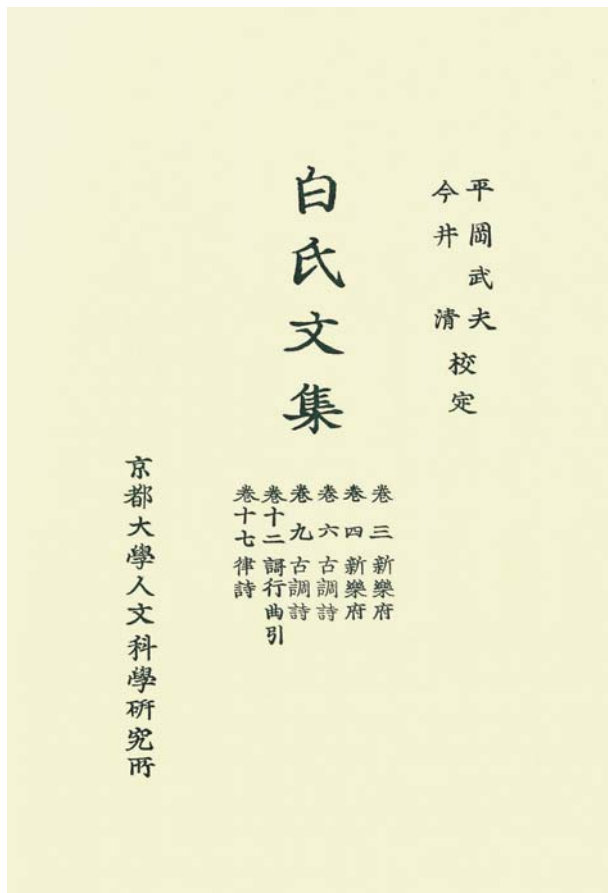 平岡武夫
今井 清 校定
白氏文集
卷 三 新樂府
卷 四 新樂府
卷 六 古調詩
卷 九 古調詩
卷十二 謌行曲引
卷十七 律詩
京都大學人文科學硏究所